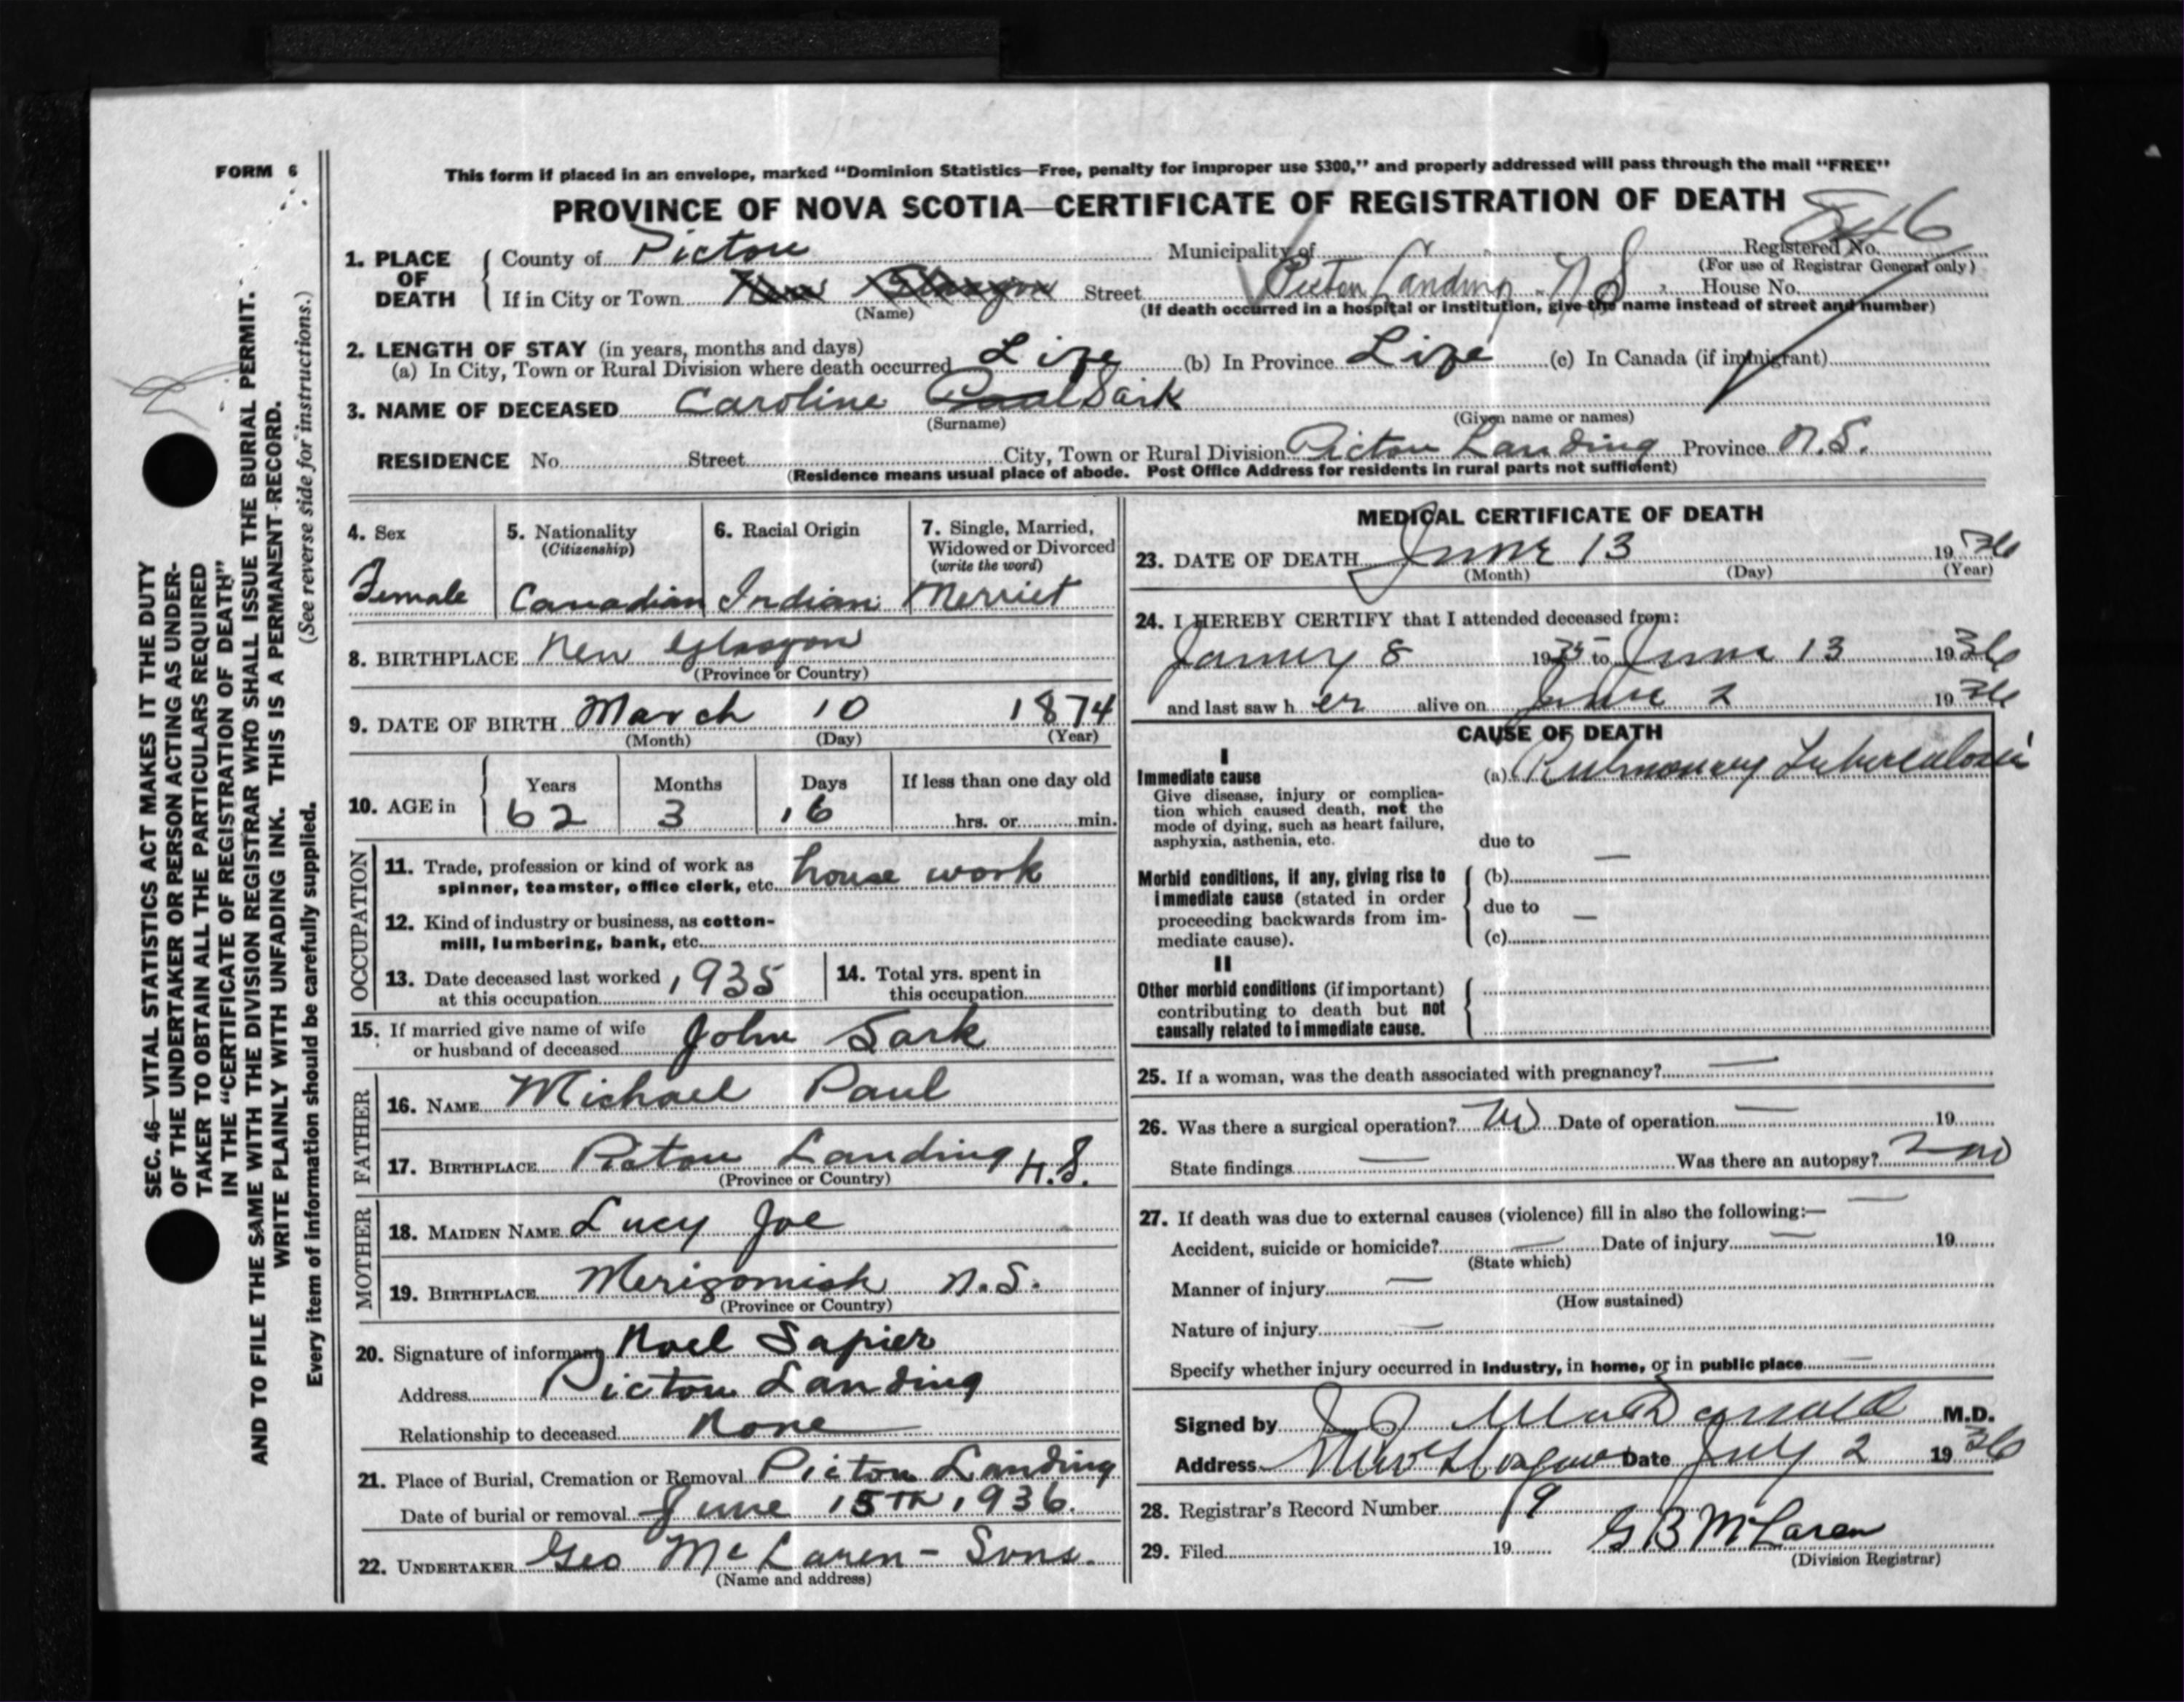 FORM 6
This form if placed in an envelope, marked "Dominion Statistics—Free, penalty for improper use $300," and properly addressed will pass through the mail "FREE"
PROVINCE OF NOVA SCOTIA—CERTIFICATE OF REGISTRATION OF DEATH
846
1. PLACE OF DEATH
County of Pictou Municipality of Registered No.
(For use of Registrar General only)
If in City or Town New Glasgow Street Pictou Landing N S House No.
(Name) (If death occurred in a hospital or institution, give the name instead of street and number)
2. LENGTH OF STAY (in years, months and days)
(a) In City, Town or Rural Division where death occurred Life (b) In Province Life (c) In Canada (if immigrant)
3. NAME OF DECEASED Caroline Paul Sark
(Surname) (Given name or names)
RESIDENCE No. Street City, Town or Rural Division Pictou Landing Province N.S.
(Residence means usual place of abode. Post Office Address for residents in rural parts not sufficient)
4. Sex
Female
5. Nationality
(Citizenship)
Canadian
6. Racial Origin
Indian
7. Single, Married,
Widowed or Divorced
(write the word)
Merriet
8. BIRTHPLACE New Glasgow
(Province or Country)
9. DATE OF BIRTH March 10 1874
(Month) (Day) (Year)
10. AGE in
Years Months Days If less than one day old
62 3 16 hrs. or min.
OCCUPATION
11. Trade, profession or kind of work as
spinner, teamster, office clerk, etc. house work
12. Kind of industry or business, as cotton-
mill, lumbering, bank, etc.
13. Date deceased last worked
at this occupation 1935
14. Total yrs. spent in
this occupation
15. If married give name of wife
or husband of deceased John Sark
FATHER
16. NAME Michael Paul
17. BIRTHPLACE Pictou Landing N.S.
(Province or Country)
MOTHER
18. MAIDEN NAME Lucy Joe
19. BIRTHPLACE Merigomish N.S.
(Province or Country)
20. Signature of informant Noel Sapier
Address Pictou Landing
Relationship to deceased None
21. Place of Burial, Cremation or Removal Pictou Landing
Date of burial or removal June 15TH 1936.
22. UNDERTAKER Geo McLaren - Sons.
(Name and address)
MEDICAL CERTIFICATE OF DEATH
23. DATE OF DEATH June 13 1936
(Month) (Day) (Year)
24. I HEREBY CERTIFY that I attended deceased from:
8 1935 to June 13 1936
and last saw her alive on June 2 1936
CAUSE OF DEATH
I
Immediate cause
(a) Pulmonary Tuberculosis
Give disease, injury or complica-
tion which caused death, not the
mode of dying, such as heart failure,
asphyxia, asthenia, etc.
due to —
Morbid conditions, if any, giving rise to
immediate cause (stated in order
proceeding backwards from im-
mediate cause).
(b)
due to —
(c)
II
Other morbid conditions (if important)
contributing to death but not
causally related to immediate cause.
25. If a woman, was the death associated with pregnancy? —
26. Was there a surgical operation? No Date of operation — 19
State findings — Was there an autopsy? no
27. If death was due to external causes (violence) fill in also the following:— —
Accident, suicide or homicide? — Date of injury — 19
(State which)
Manner of injury —
(How sustained)
Nature of injury —
Specify whether injury occurred in industry, in home, or in public place —
Signed by MacDonald M.D.
Address New Glasgow Date July 2 1936
28. Registrar's Record Number 19
29. Filed 19 G B McLaren
(Division Registrar)
SEC. 46—VITAL STATISTICS ACT MAKES IT THE DUTY
OF THE UNDERTAKER OR PERSON ACTING AS UNDER-
TAKER TO OBTAIN ALL THE PARTICULARS REQUIRED
IN THE "CERTIFICATE OF REGISTRATION OF DEATH"
AND TO FILE THE SAME WITH THE DIVISION REGISTRAR WHO SHALL ISSUE THE BURIAL PERMIT.
WRITE PLAINLY WITH UNFADING INK. THIS IS A PERMANENT RECORD.
(See reverse side for instructions.)
Every item of information should be carefully supplied.